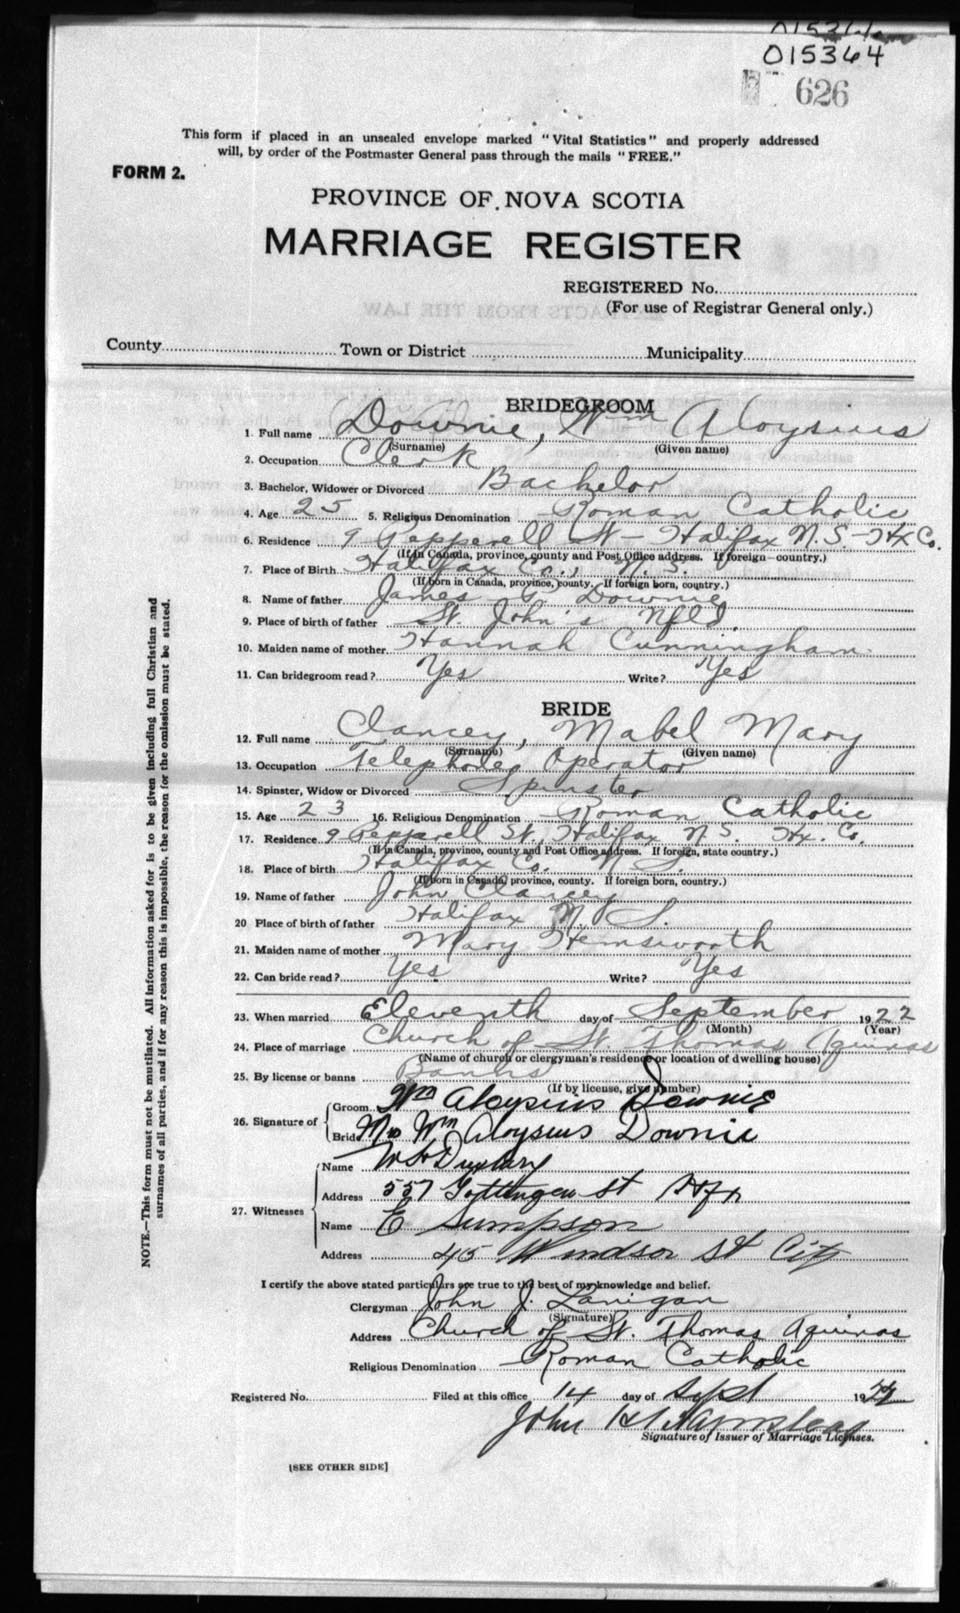 015364
626
This form if placed in an unsealed envelope marked "Vital Statistics" and properly addressed
will, by order of the Postmaster General pass through the mails "FREE."
FORM 2.
PROVINCE OF NOVA SCOTIA
MARRIAGE REGISTER
REGISTERED No.
(For use of Registrar General only.)
County Town or District Municipality
BRIDEGROOM
1. Full name Downie, Wm Aloysius
(Surname) (Given name)
2. Occupation Clerk
3. Bachelor, Widower or Divorced Bachelor
4. Age 25 5. Religious Denomination Roman Catholic
6. Residence 9 Pepperell St - Halifax N.S. - Hx Co.
(If in Canada, province, county and Post Office address. If foreign—country.)
7. Place of Birth Halifax Co., N.S.
(If born in Canada, province, county. If foreign born, country.)
8. Name of father James Downie
9. Place of birth of father St. John's Nfld.
10. Maiden name of mother Hannah Cunningham
11. Can bridegroom read? Yes Write? Yes
BRIDE
12. Full name Clancey, Mabel Mary
(Surname) (Given name)
13. Occupation Telephone Operator
14. Spinster, Widow or Divorced Spinster
15. Age 23 16. Religious Denomination Roman Catholic
17. Residence 9 Pepperell St, Halifax N.S. Hx. Co.
(If in Canada, province, county and Post Office address. If foreign, state country.)
18. Place of birth Halifax Co. N.S.
(If born in Canada, province, county. If foreign born, country.)
19. Name of father John Clancey
20 Place of birth of father Halifax N.S.
21. Maiden name of mother Mary Hemsworth
22. Can bride read? Yes Write? Yes
23. When married Eleventh day of September 1922
(Month) (Year)
24. Place of marriage Church of St. Thomas Aquinas
(Name of church or clergyman's residence or location of dwelling house)
25. By license or banns Banns
(If by license, give number)
26. Signature of
Groom Wm Aloysius Downie
Bride Mrs Wm Aloysius Downie
27. Witnesses
Name
Address 557 Gottingen St Hfx
Name E Sumpson
Address 45 Windsor St City
I certify the above stated particulars are true to the best of my knowledge and belief.
Clergyman John J. Lanigan
(Signature)
Address Church of St. Thomas Aquinas
Religious Denomination Roman Catholic
Registered No. Filed at this office 14 day of Sept 1922
John
Signature of Issuer of Marriage Licenses.
[SEE OTHER SIDE]
NOTE.—This form must not be mutilated. All information asked for is to be given including full Christian and
surnames of all parties, and if for any reason this is impossible, the reason for the omission must be stated.